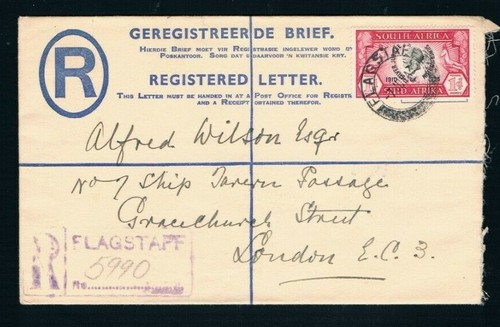 GEREGISTREERDE BRIEF.
HIERDIE BRIEF MOET VIR REGISTRASIE INGELEWER WORD
POSKANTOOR. SORG DAT U DAARVOOR 'N KWITANSIE KRY.
R
REGISTERED LETTER.
THIS LETTER MUST BE HANDED IN AT A POST OFFICE FOR REGIST
AND A RECEIPT OBTAINED THEREFOR.
SOUTH AFRICA
1910
1d
SUID-AFRIKA
FLAGSTAFF
Alfred Wilson Esqr
No 7 Ship Tavern Passage
Gracechurch Street
London E.C.3.
R FLAGSTAFF
5990
No.